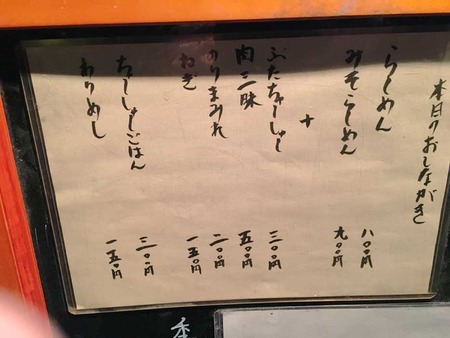 本日のおしながき
らーめん 八〇〇円
みそらーめん 九〇〇円
+
ぶたちゃーしゅー 三〇〇円
肉三昧 五〇〇円
のりまみれ 二〇〇円
ねぎ 一五〇円
ちゃーしゅーごはん 三〇〇円
のりめし 一五〇円